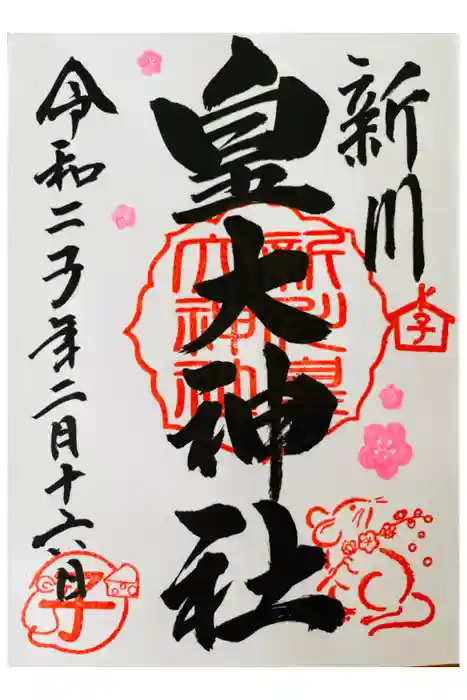 新川
子
皇大神社
新川皇
大神社
令和二子年二月十六日
子